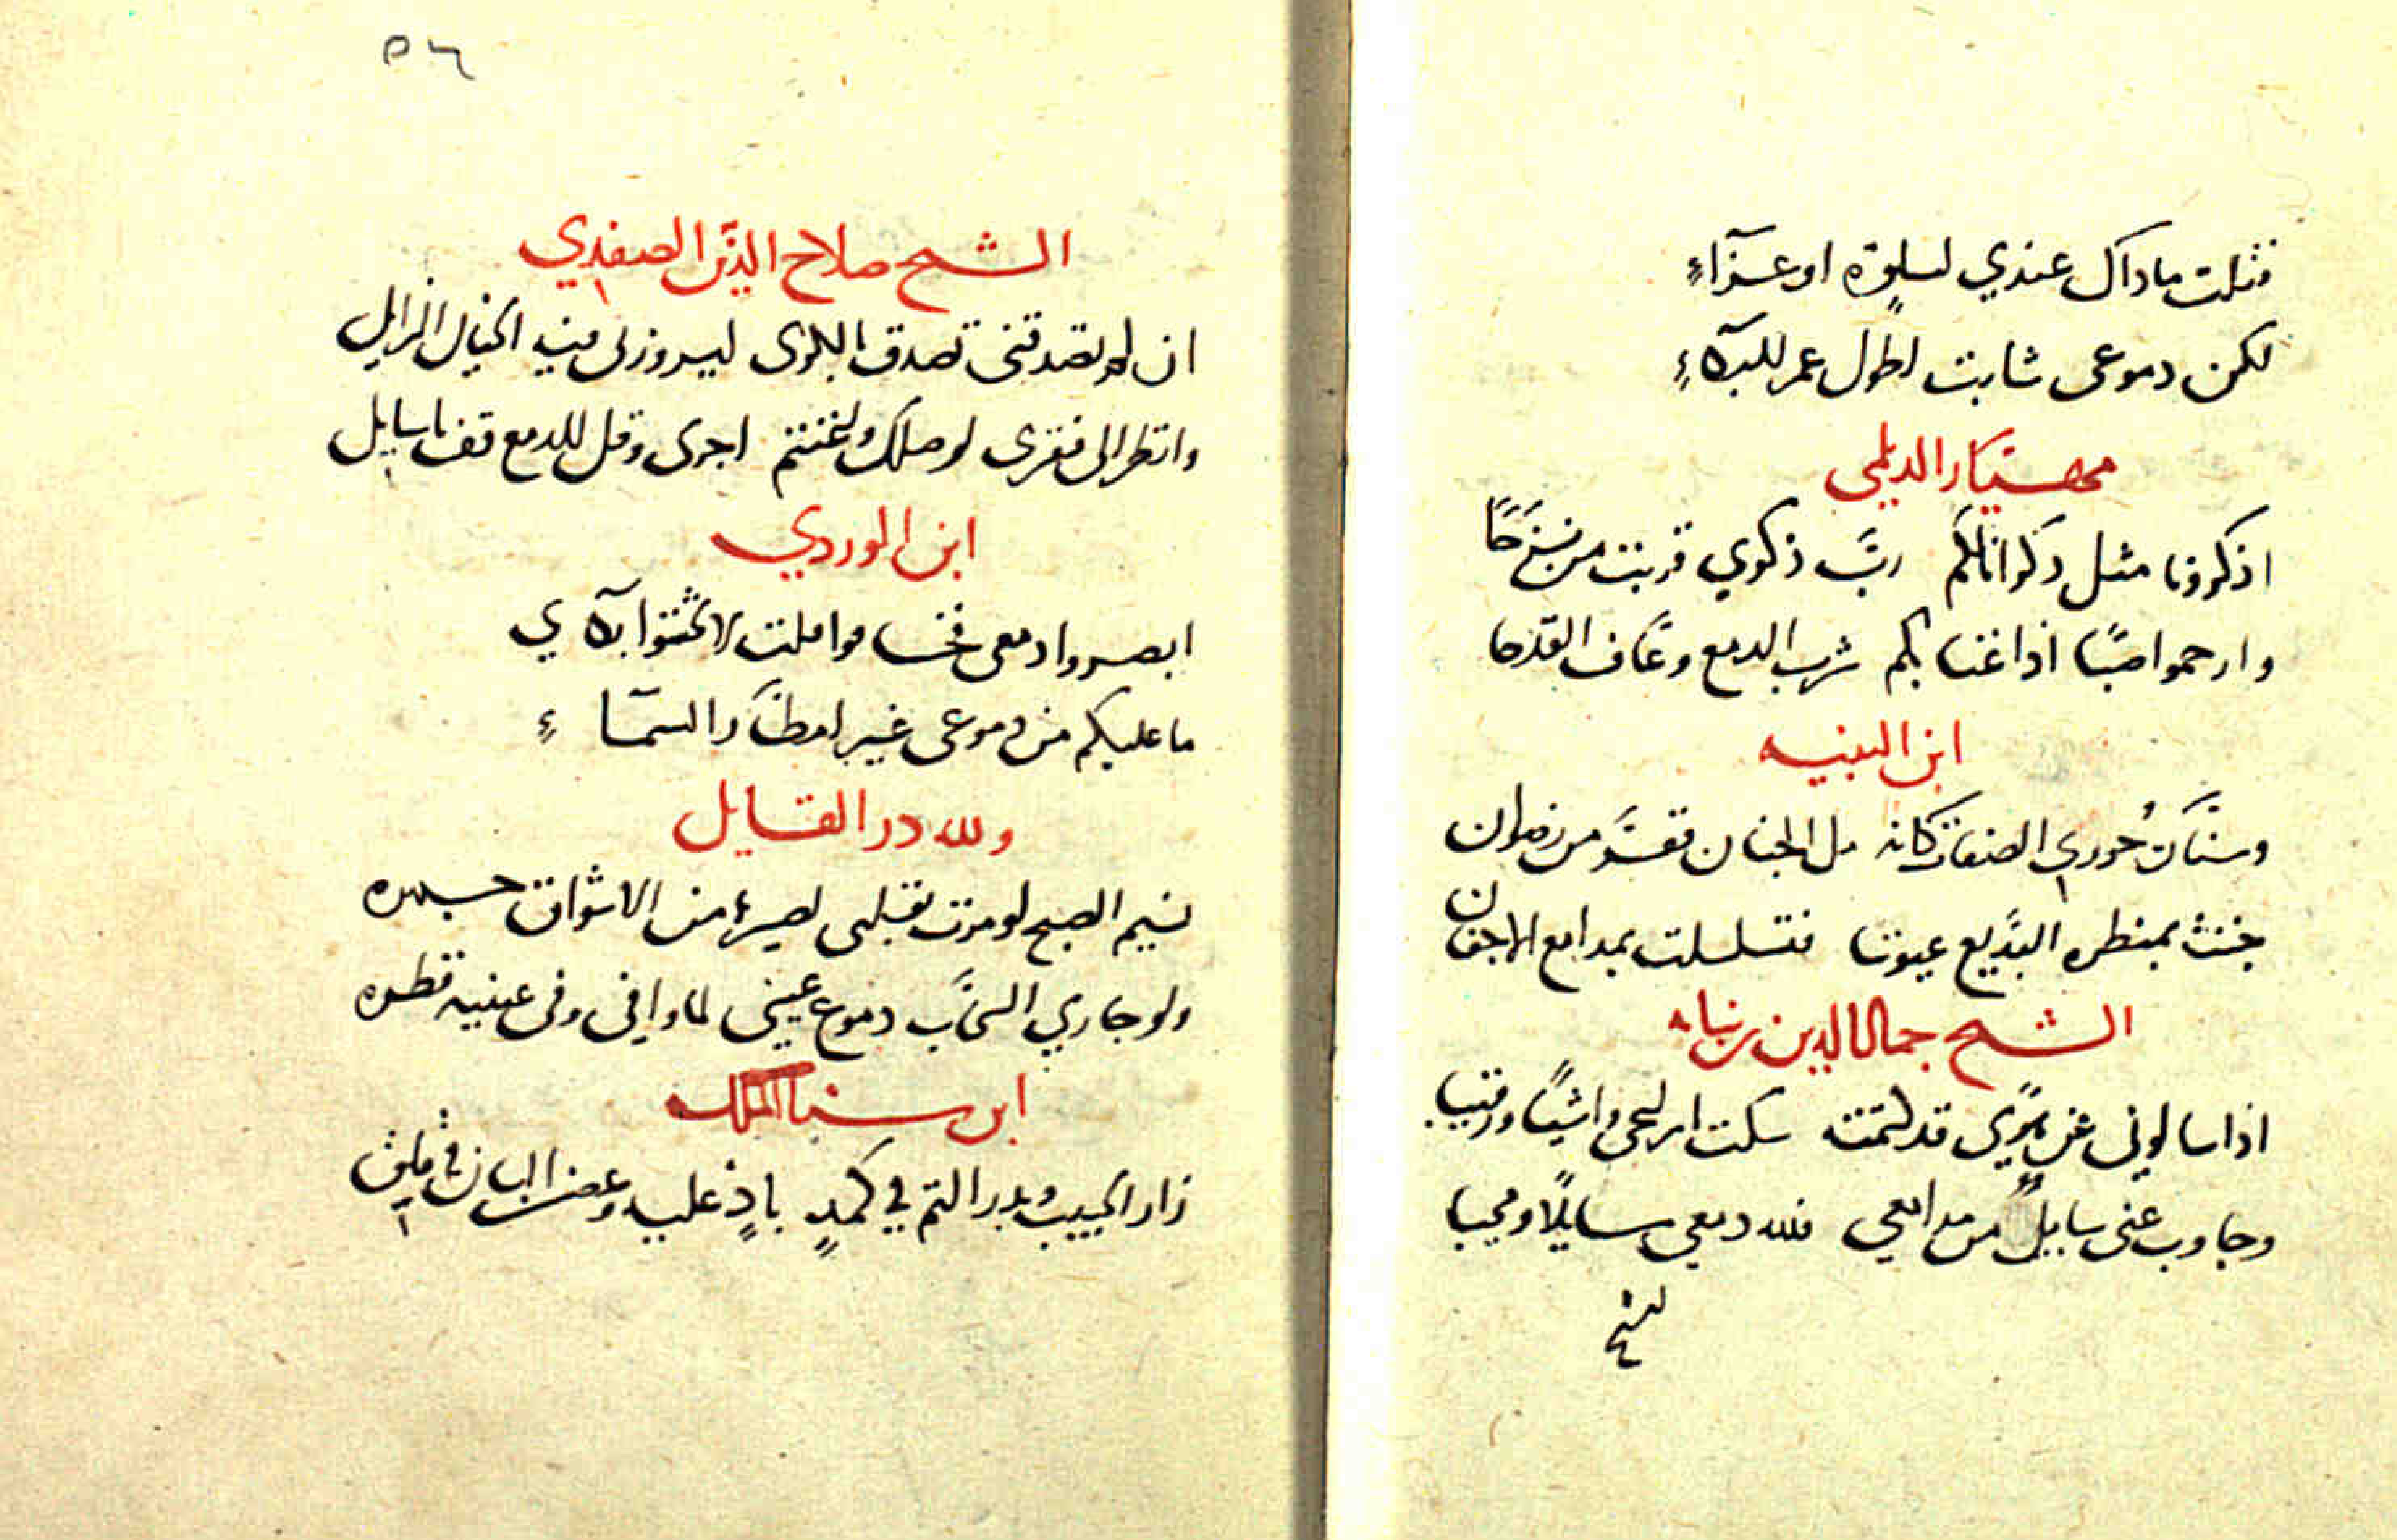 فقلت ماذاك عندي لسلوة او عزآء
لكن دموعى شابت لطول عمر البكآء
مهيار الديلمى
اذكرونا مثل ذكرانا لكم ربَّ ذكري قربت من نزحًا
وارحموا صبًا اذا غنا بكم شرب الدمع وعاف القدحا
ابن النبيه
وسنان حوري الصفات كانه مل الجنان ففر من رضوان
بمنظره البديع عيوننا فتسلسلت بمدامع الاجفان
الشيخ جمال الدين بن نباته
اذا سالونى عن هوًى قد كتمته سكت اراعى واشيًا ورقيبا
وجاوب عنى سايلٌ من مدامعي فلله دمعى سايلًا ومجيبا
٥٦
الشيخ صلاح الدين الصفدي
ان لم تصدقنى تصدق بالكرى ليزورنى فيه الخيال الزايل
وانظر الى فقرى لوصلك واغتنم اجرى وقل للدمع قف ياسايل
ابن الوردي
ابصروا دمعى فخافوا قلت لا تخشوا بكآي
ما عليكم من دموعى غير امطار السمآء
ولله در القايل
نسيم الصبح لو مرت بقلبى لصيرها من الاشواق
ولو جاري السحاب دموع عينى لما وافى وفى عينيه قطره
ابن سنا الملك
زار الحبيب وبدر التم في كمدٍ بادٍ عليه وغصن البان فى قلق